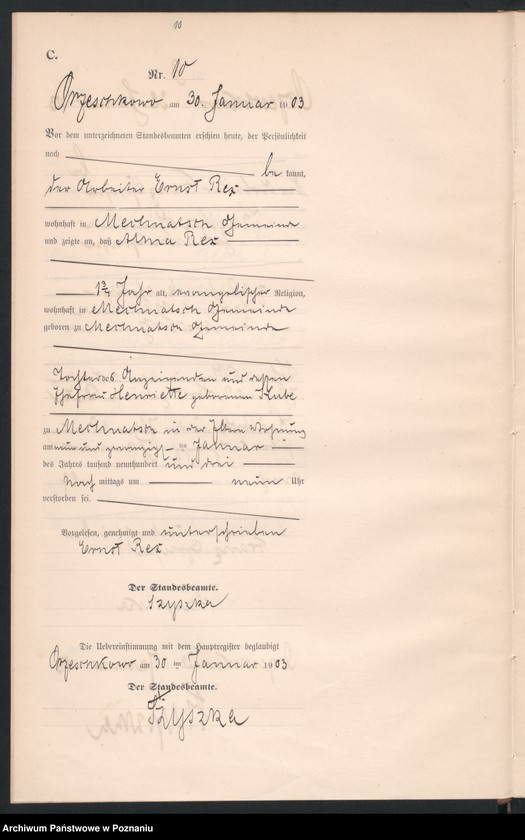 10
C.
Nr. 10
Orzeschkowo am 30. Januar 1903
Vor dem unterzeichneten Standesbeamten erschien heute, der Persönlichkeit
nach be kannt,
der Arbeiter Ernst Rex
wohnhaft in Mechnatsch Gemeinde
und zeigte an, daß Alma Rex
1¾ Jahr alt, evangelischer Religion,
wohnhaft in Mechnatsch Gemeinde
geboren zu Mechnatsch Gemeinde
Tochter des Anzeigenden und dessen
Ehefrau Henriette geborenen
zu Mechnatsch in der Eltern Wohnung
am neun und zwanzigst en Januar
des Jahres tausend neunhundert und drei
Nach mittags um neun Uhr
verstorben sei.
Vorgelesen, genehmigt und unterschrieben
Ernst Rex
Der Standesbeamte.
Szyszka
Die Uebereinstimmung mit dem Hauptregister beglaubigt
Orzeschkowo am 30 ten Januar 1903
Der Standesbeamte.
Szyszka
Archiwum Państwowe w Poznaniu